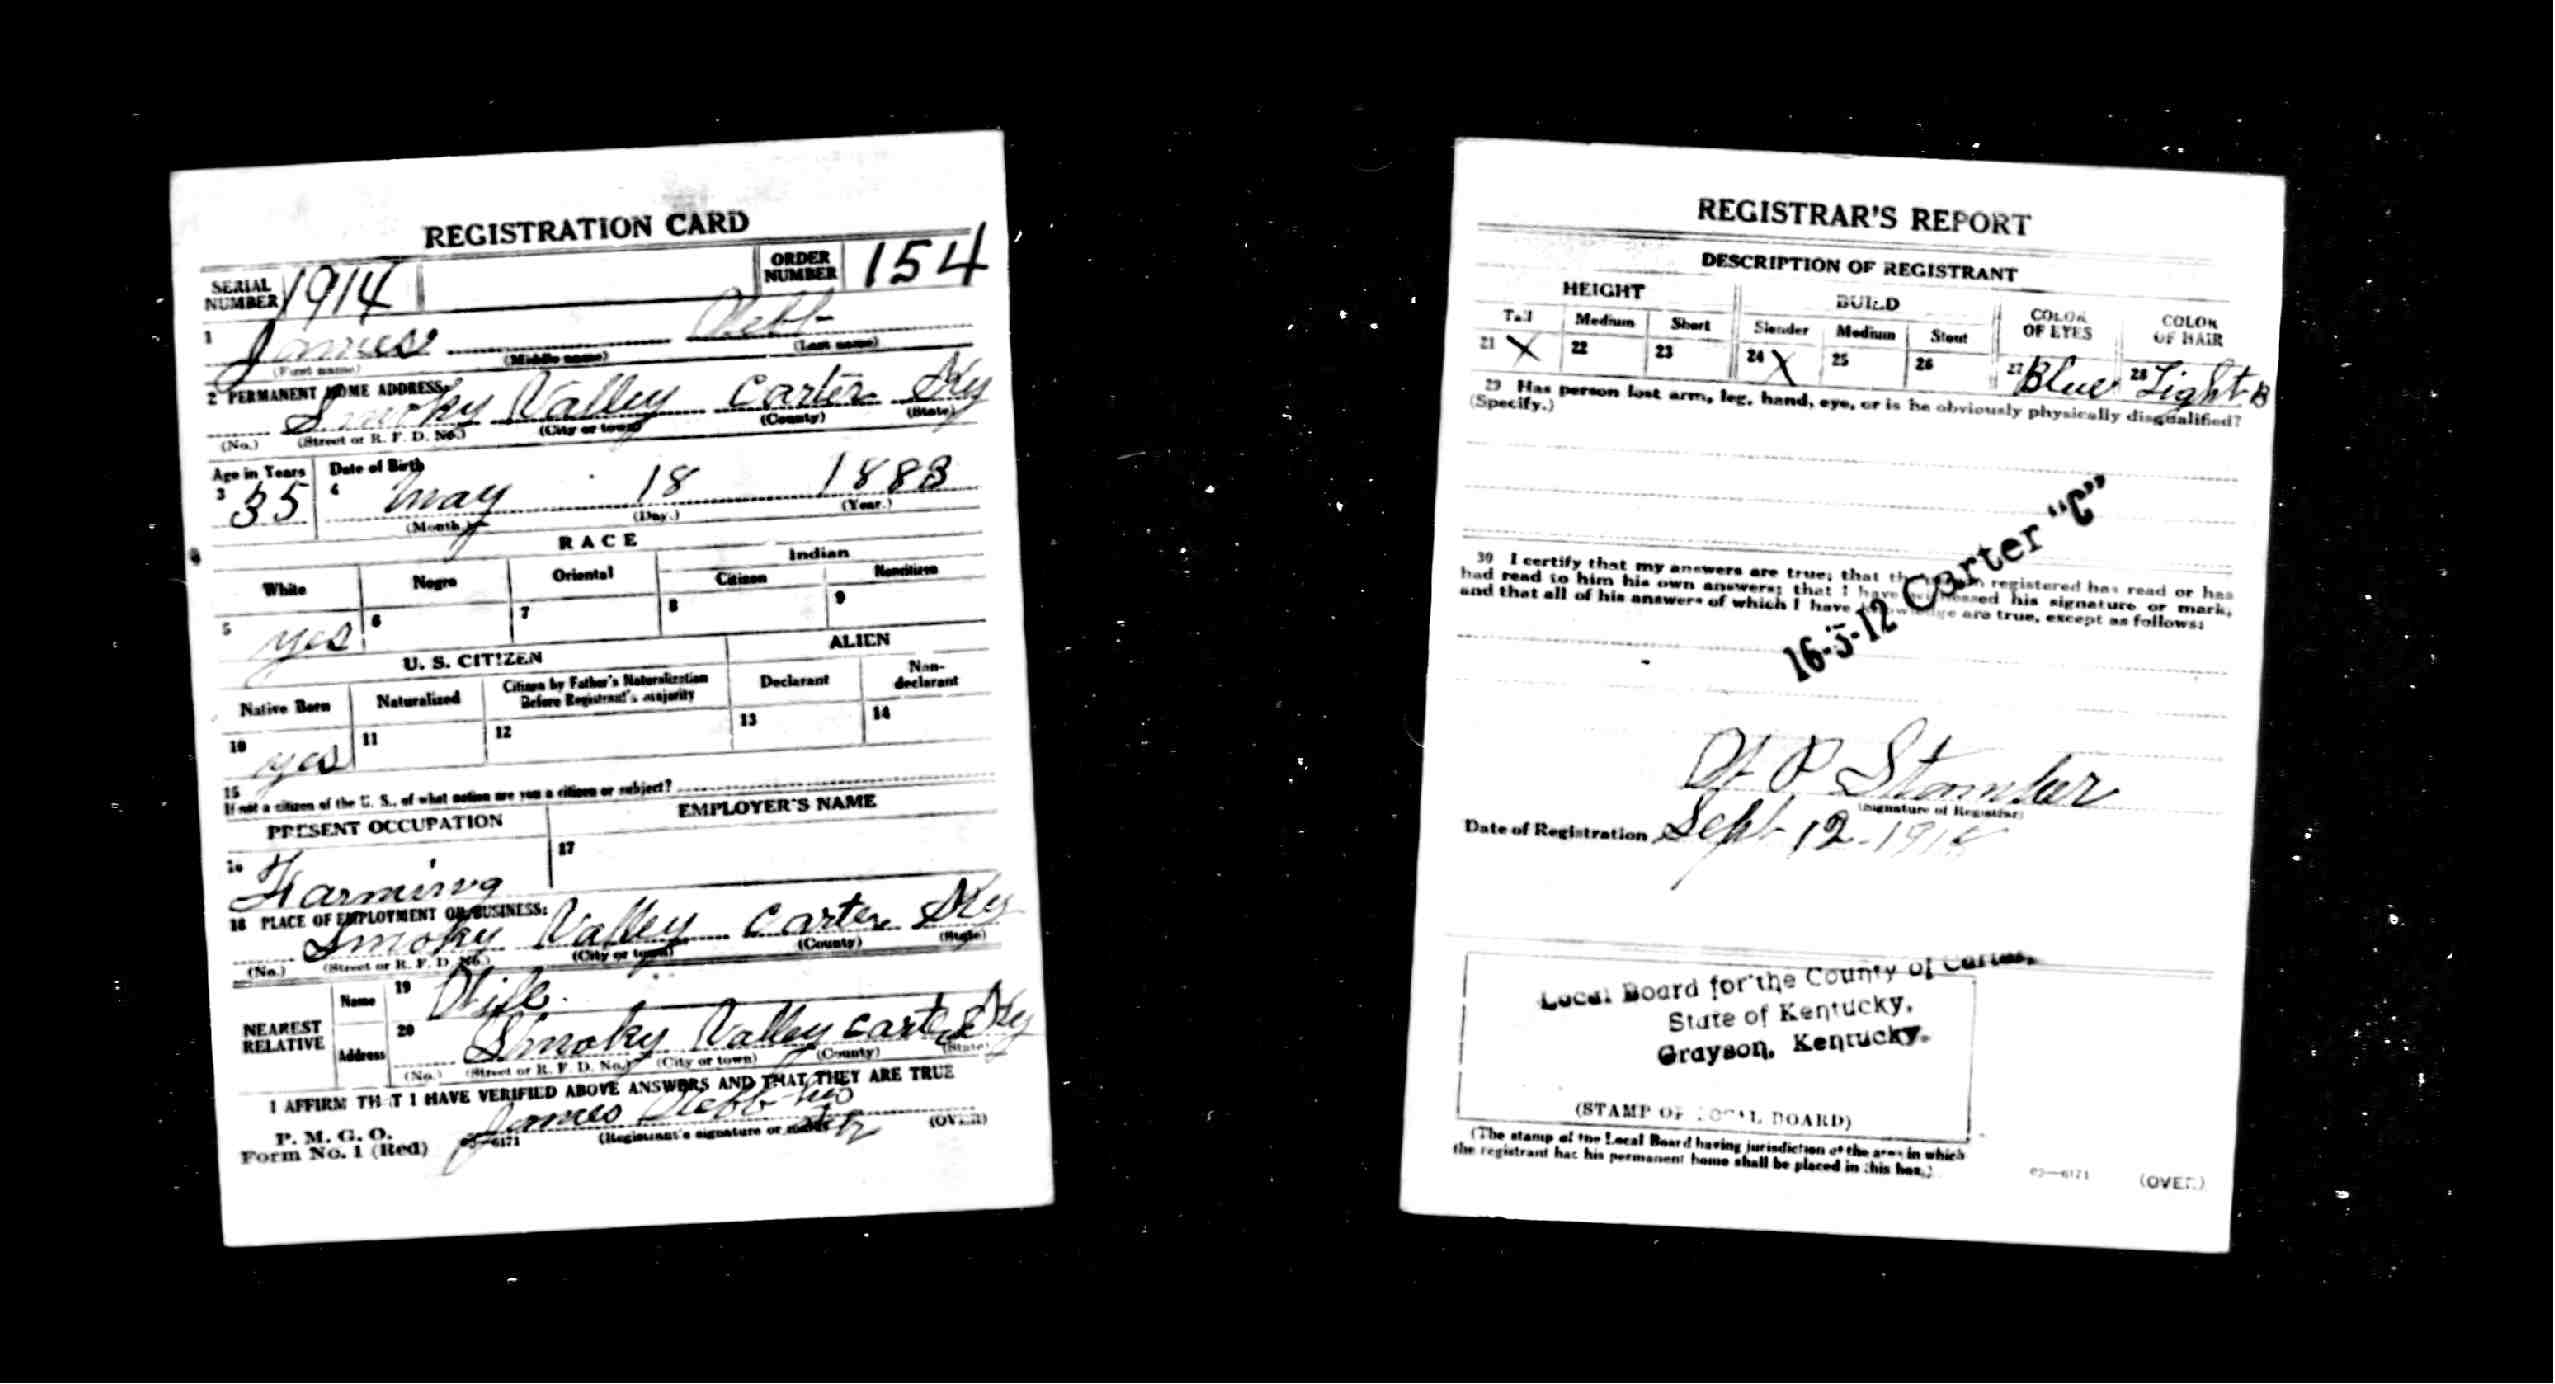 REGISTRATION CARD
SERIAL NUMBER 1914 ORDER NUMBER 154
1 James Webb
(First name) (Middle name) (Last name)
2 PERMANENT HOME ADDRESS:
Smoky Valley Carter Ky
(No.) (Street or R. F. D. No.) (City or town) (County) (State)
Age in Years Date of Birth
3 35 4 May 18 1883
(Month.) (Day.) (Year.)
RACE
White Negro Oriental Indian
Citizen Noncitizen
5 yes 6 7 8 9
U. S. CITIZEN ALIEN
Native Born Naturalized Citizen by Father's Naturalization Before Registrant's majority Declarant Non-declarant
10 yes 11 12 13 14
15
If not a citizen of the U. S., of what nation are you a citizen or subject?
PRESENT OCCUPATION EMPLOYER'S NAME
16 Farming 17
18 PLACE OF EMPLOYMENT OR BUSINESS:
Smoky Valley Carter Ky
(No.) (Street or R. F. D. No.) (City or town) (County) (State)
NEAREST RELATIVE Name 19 Wife
Address 20 Smoky Valley Carter Ky
(No.) (Street or R. F. D. No.) (City or town) (County) (State)
I AFFIRM THAT I HAVE VERIFIED ABOVE ANSWERS AND THAT THEY ARE TRUE
P. M. G. O.
Form No. 1 (Red) 03—6171 James Webb his
(Registrant's signature or mark) (OVER)
REGISTRAR'S REPORT
DESCRIPTION OF REGISTRANT
HEIGHT BUILD COLOR OF EYES COLOR OF HAIR
Tall Medium Short Slender Medium Stout
21 X 22 23 24 X 25 26 27 Blue 28 Light B
29 Has person lost arm, leg, hand, eye, or is he obviously physically disqualified?
(Specify.)
30 I certify that my answers are true; that the person registered has read or has
had read to him his own answers; that I have witnessed his signature or mark,
and that all of his answers of which I have knowledge are true, except as follows:
16-5-12 Carter "C"
P
(Signature of Registrar)
Date of Registration Sept 12-191
Local Board for the County of Carter,
State of Kentucky,
Grayson, Kentucky.
(STAMP OF LOCAL BOARD)
(The stamp of the Local Board having jurisdiction of the area in which
the registrant has his permanent home shall be placed in this box.)
03—6171 (OVER)